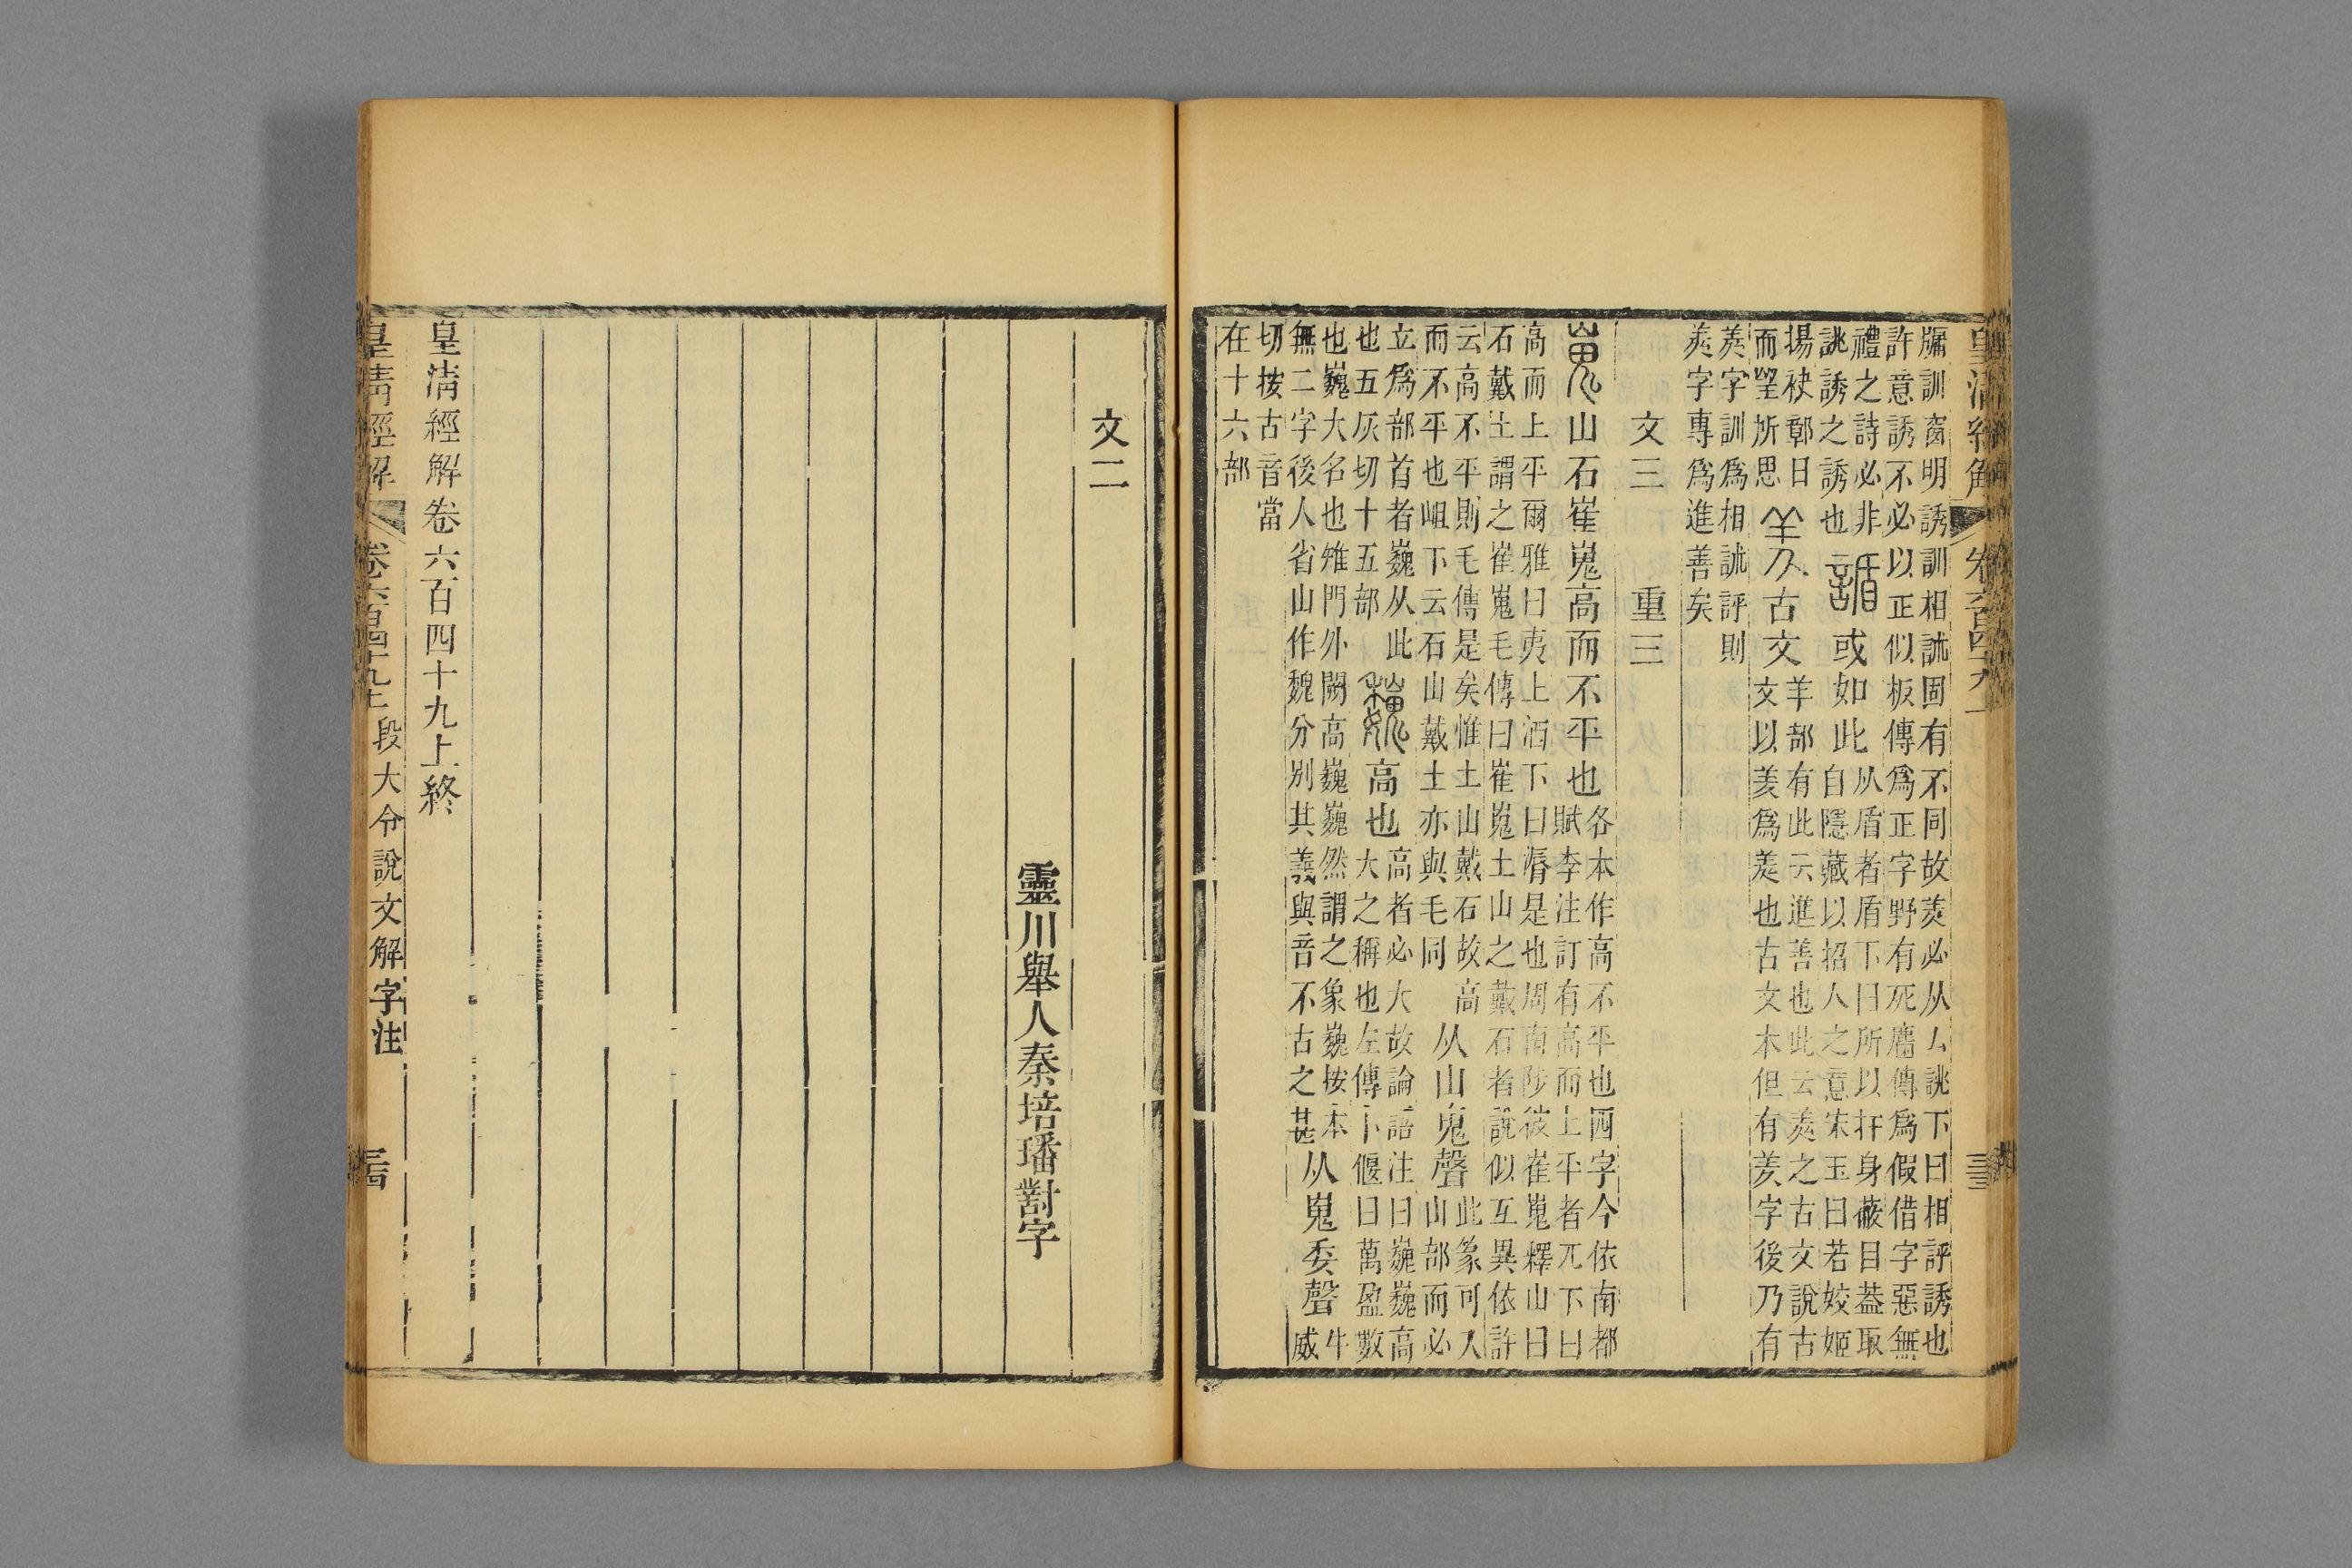 皇清經解
牖訓窗明誘訓相訹固有不同故羑必从厶誂下曰相評誘也
許意誘不必以正似板傳爲正字野有死麕傳爲假借字惡無
禮之詩必非
誂誘之誘也
或如此
从盾者盾下曰所以扞身蔽目葢取
自隱藏以招人之意宋玉曰若姣姬
揚袂鄣日
而朢所思
古文
羊部有此云進善也此云羑之古文說古
文以羑爲羑也古文本但有羑字後乃有
羑字訓爲相訹評則
羑字專爲進善矣
文三 重三
嵬山石崔嵬高而不平也
各本作高不平也四字今依南都
賦李注訂有高而上平者兀下曰
高而上平爾雅曰夷上洒下曰漘是也周南陟彼崔嵬釋山曰
石戴土謂之崔嵬毛傳曰崔嵬土山之戴石者說似互異依許
云高不平則毛傳是矣惟土山戴石故高
而不平也岨下云石山戴土亦與毛同
从山鬼聲
此篆可入
山部而必
立爲部首者巍从此
也五灰切十五部
巍高也
高者必大故論語注曰巍巍高
大之稱也左傳卜偃曰萬盈數
也巍大名也雉門外闕高巍巍然謂之象巍按本
無二字後人省山作魏分別其義與音不古之甚
从嵬委聲
牛
威
切按古音當
在十六部
文二
靈川舉人秦培璠對字
皇清經解卷六百四十九上終
皇清經解
卷六百四十九上
段大令說文解字注